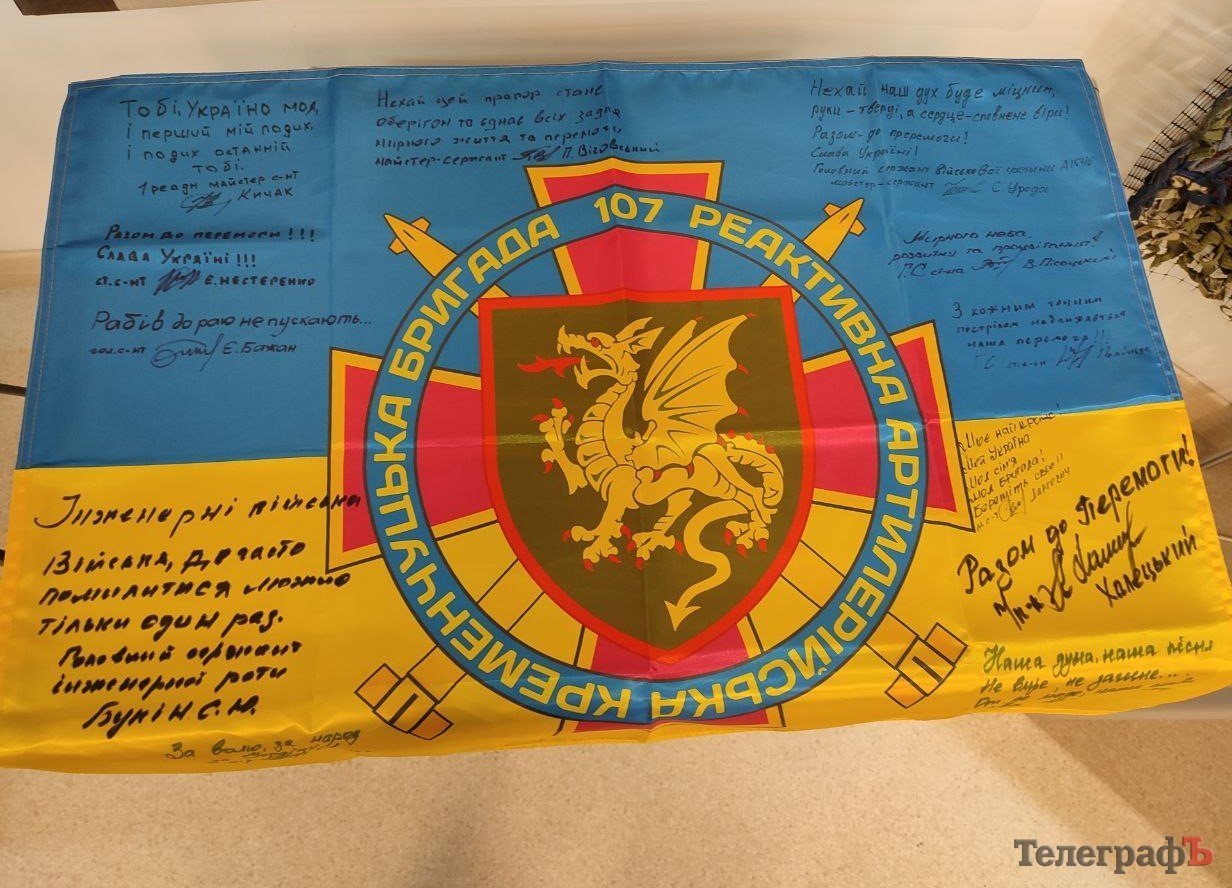 Тобі, Україно моя,
і перший мій подих,
і подих останній
тобі.
1 реадн майстер с-нт
Кичак
Разом до перемоги!!!
Слава Україні!!!
ст. с-нт Є. Нестеренко
Рабів до раю не пускають...
гол. с-нт Є. Бажан
Нехай цей прапор стане
оберігом та єднає всіх задля
мирного життя та перемоги,
майстер-сержант П. Віговський
Нехай наш дух буде міцним,
руки – тверді, а серце – сповнене віри!
Разом – до перемоги!
Слава Україні!
Головний сержант військової частини
майстер-сержант С. Урода
Мирного неба,
розвитку та процвітання!
ГС В.
З кожним точним
пострілом наближається
наша перемога!!!
ГС ст. с-нт
107 РЕАКТИВНА АРТИЛЕРІЙСЬКА КРЕМЕНЧУЦЬКА БРИГАДА
Моє найкраще!
Моя Україно
Моя сім'я
Моя бригада!
Бережіть своє!!
Разом до Перемоги!
Халецький
Наша дума, наша пісня
Не вмре, не загине...
Інженерні війська
Війська, де часто
помилитися можно
тільки один раз.
Головний сержант
інженерної роти
Букін С.Ю.
За волю, за народ
ТелеграфЪ